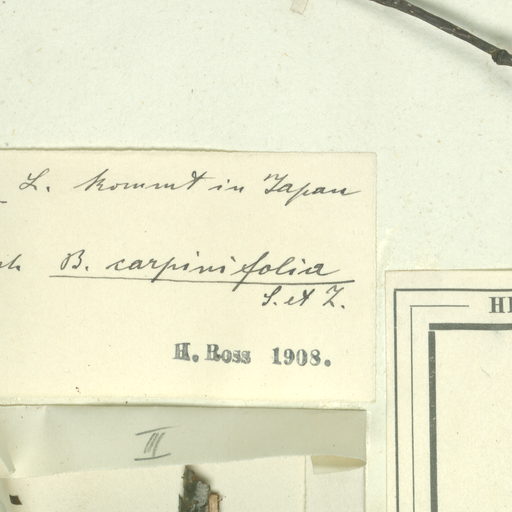 L. kommt in Japan
B. carpinifolia
S. et Z.
H. Ross 1908.
III